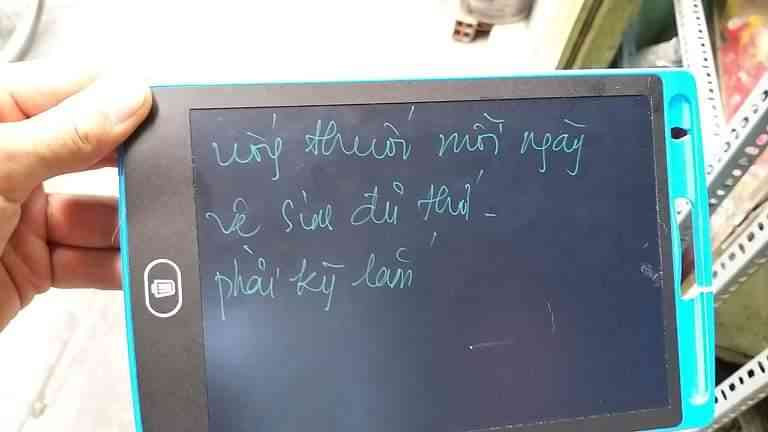 uống thuốc mỗi ngày
vệ sinh đủ thứ
phải kỹ lắm